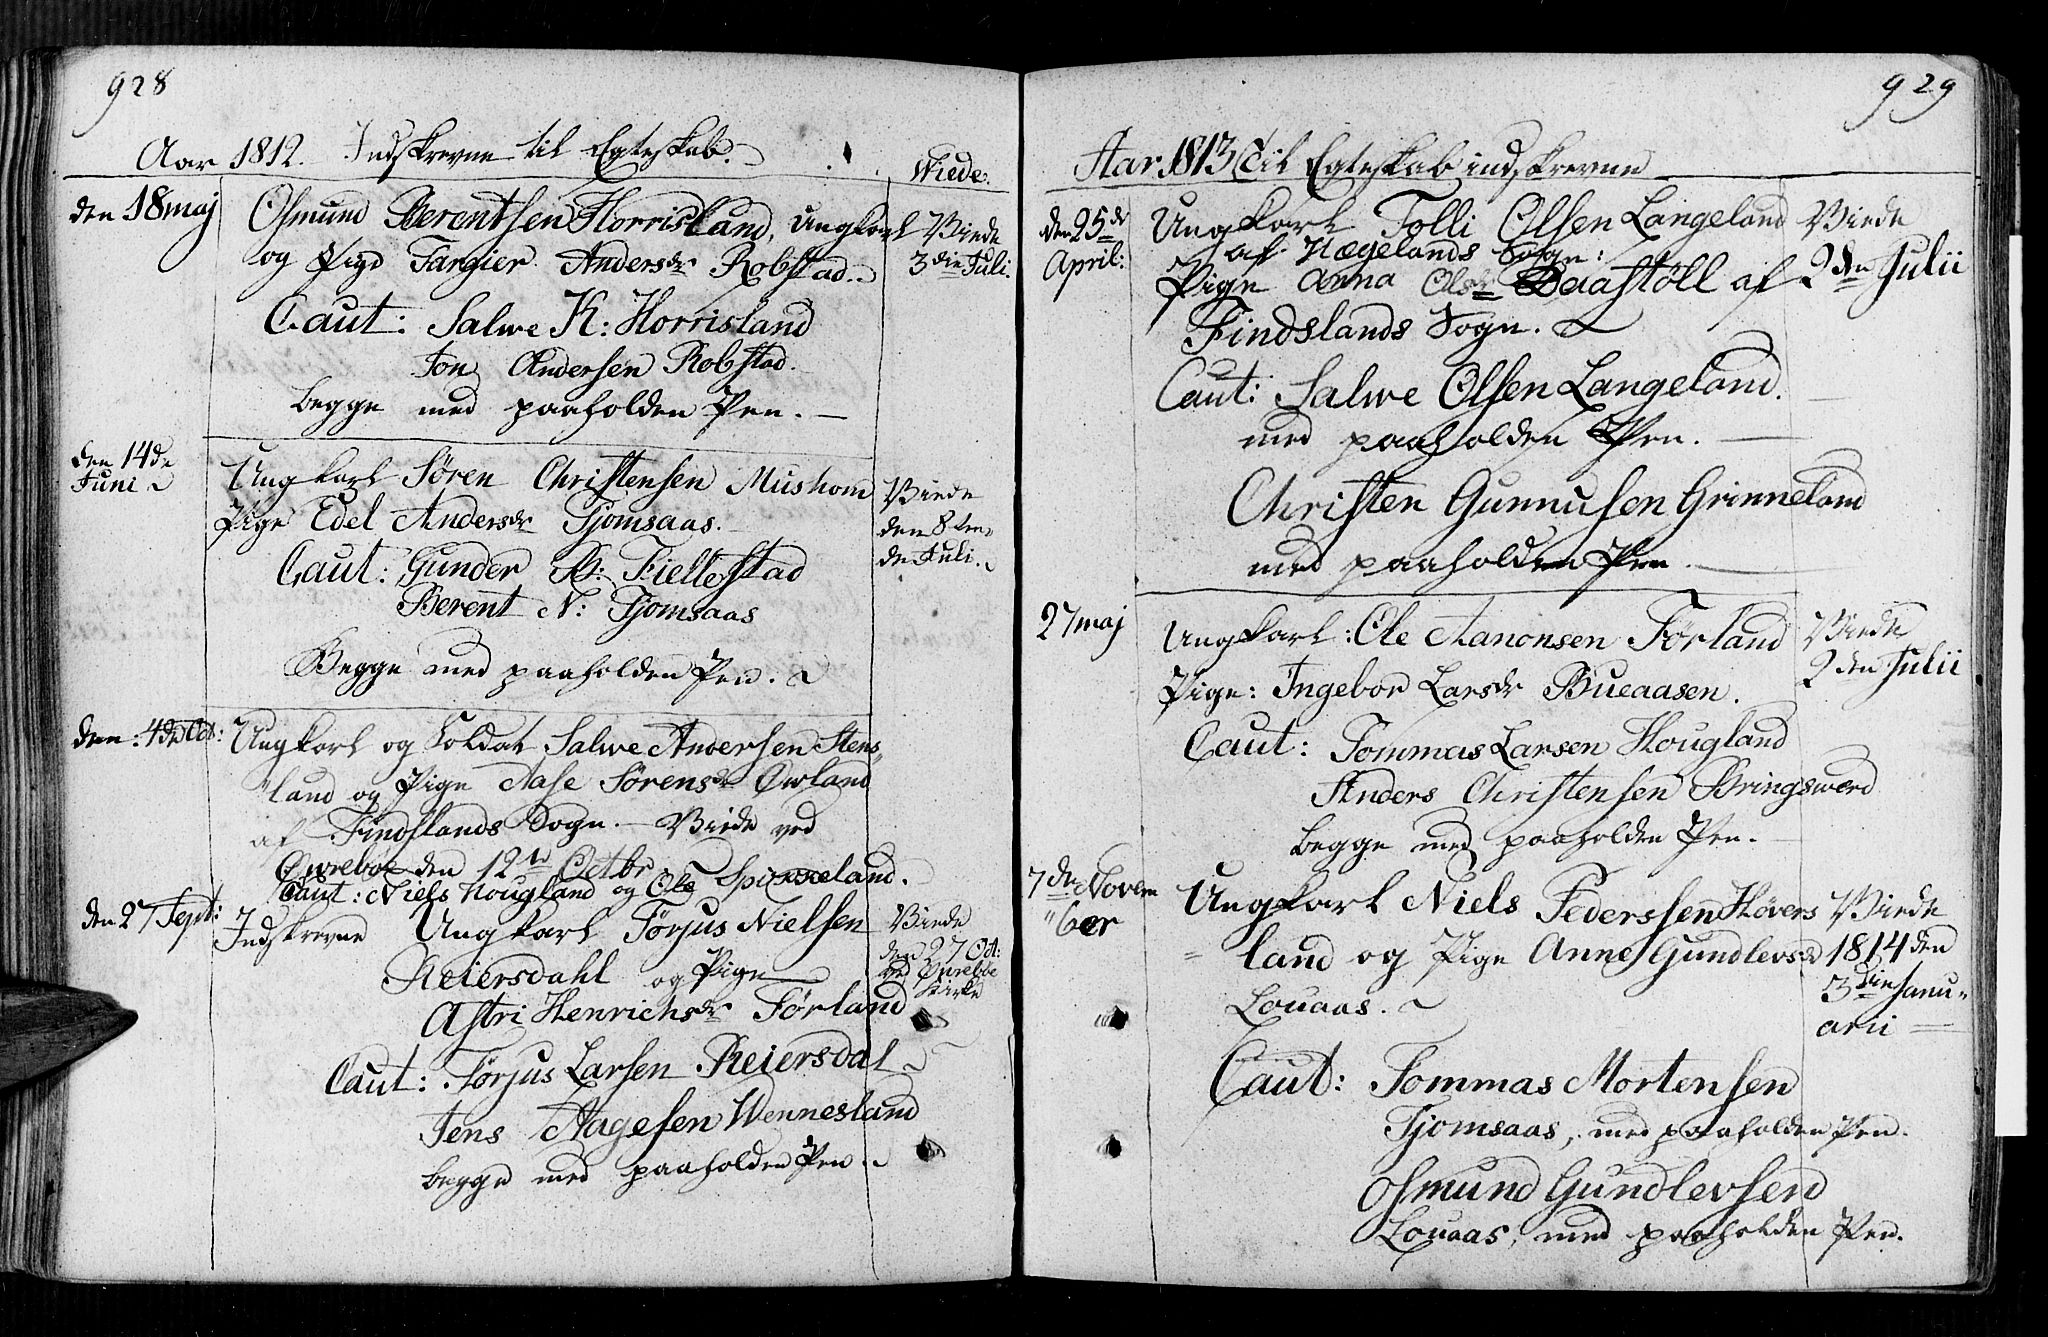 928
Aar 1812. Indskrevne til Egteskab.
Wiede.
den 18 maj
Osmund Berentsen Horrisland, Ungkarl
og Pige Targier Andersdr Robstad.
Viede
3die Juli.
Caut: Salwe K: Horrisland
Jon Andersen Robstad.
begge med paaholden Pen.
den 14de
Juni
Ungkarl Sören Christensen Mushom
Pige Edel Andersdr Tjomsaas.
Viede
den 8ten
de Juli.
Caut: Gunder B: Fiellestad
Berent N: Tjomsaas
Begge med paaholden Pen.
den: 4de Oct:
Ungkarl og Soldat Salwe Andersen Stens
land og Pige Aase Sörensdr Øwland
af Findslands Sogn. Viede ved
Øwreboe den 12te Octbr
Caut: Niels Hougland og Ole Spinneland.
den 27 Sept:
Indskrevne Ungkarl Törjus Nielsen
Reiersdahl og Pige
Astri Henrichsdr Förland
Viede
den 27 Oct:
ved Øurebøe
Kirke
Caut: Törjus Larsen Reiersdal
Jens Aagesen Wennesland
begge med paaholden Pen.
929
Aar 1813 Til Egteskab indskrevne
den 25de
April:
Ungkarl Tolli Olsen Langeland
af Hægelands Sogn:
Pige Anna Olsdr Daastöll af
Findslands Sogn.
Viede
2den Julii
Caut: Salwe Olsen Langeland.
med paaholden Pen.
Christen Gunnusen Grinneland
med paaholden Pen.
27 maj
Ungkarl: Ole Aanonsen Förland
Pige: Ingebor Larsdr Bueaasen.
Viede
2den Julii
Caut: Tommas Larsen Hougland
Anders Christensen Bringsword
begge med paaholden Pen.
7de Novem
"ber
Ungkarl Niels Pederssen Hövers
land og Pige Anne Gundlevsdr
Louaas.
Viede
1814 den
3die Janu"
arii
Caut: Tommas Mortensen
Tjomsaas, med paaholden Pen.
Osmund Gundlevsen
Louaas, med paaholden Pen.